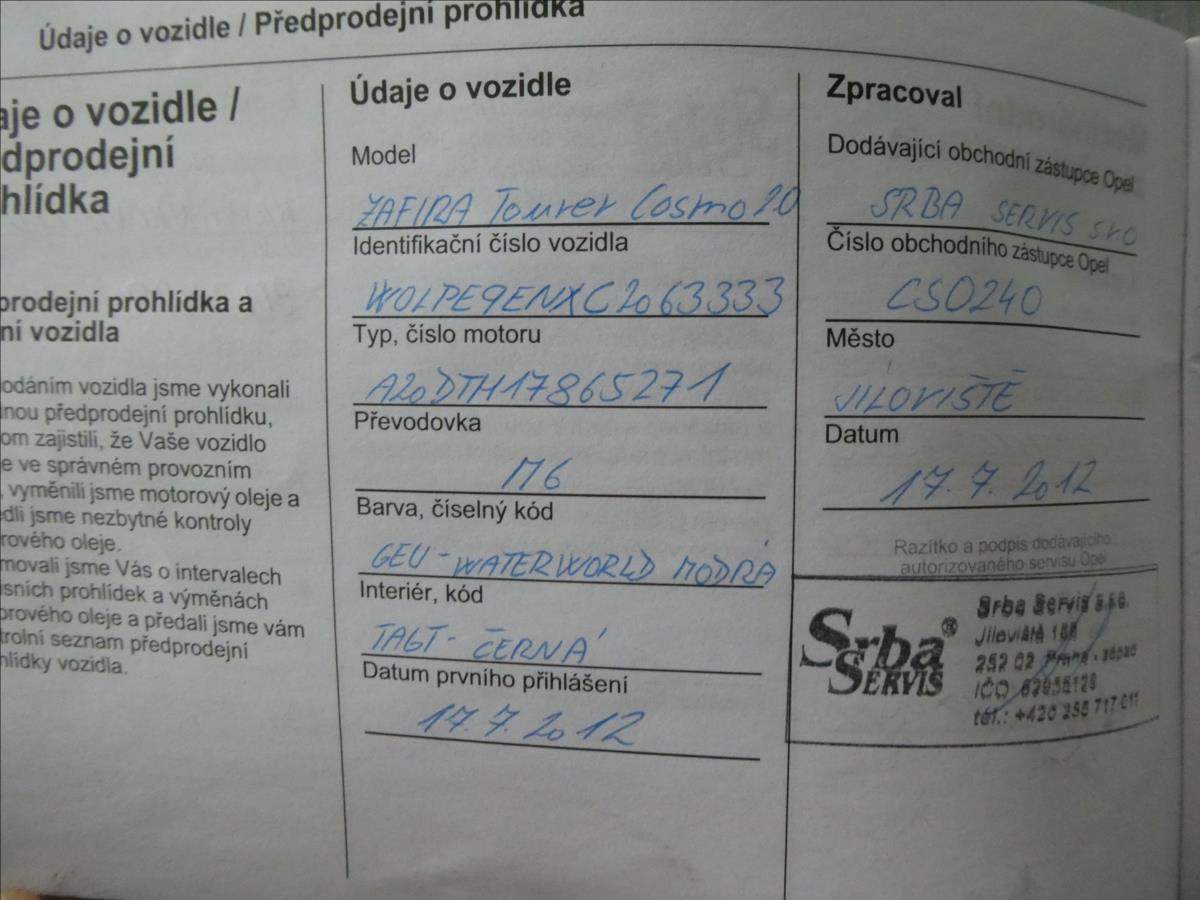 Údaje o vozidle / Předprodejní prohlídka
aje o vozidle /
dprodejní
hlídka
prodejní prohlídka a
ní vozidla
odáním vozidla jsme vykonali
nou předprodejní prohlídku,
om zajistili, že Vaše vozidlo
e ve správném provozním
, vyměnili jsme motorový oleje a
dli jsme nezbytné kontroly
rového oleje.
movali jsme Vás o intervalech
sních prohlídek a výměnách
orového oleje a předali jsme vám
trolní seznam předprodejní
hlídky vozidla.
Údaje o vozidle
Model
ZAFIRA Tourer Cosmo 2.0
Identifikační číslo vozidla
WOLPE9ENXC2063333
Typ, číslo motoru
A20DTH17865271
Převodovka
M6
Barva, číselný kód
GEU - WATERWORLD MODRÁ
Interiér, kód
TAGT - ČERNÁ
Datum prvního přihlášení
17.7.2012
Zpracoval
Dodávající obchodní zástupce Opel
SRBA SERVIS s.r.o
Číslo obchodního zástupce Opel
CSO240
Město
JÍLOVIŠTĚ
Datum
17.7.2012
Razítko a podpis dodávajícího
autorizovaného servisu Opel
Srba ®
SERVIS
Srba Servis s.r.o.
Jíloviště
252 02 Praha - západ
IČO:
tel.: +420